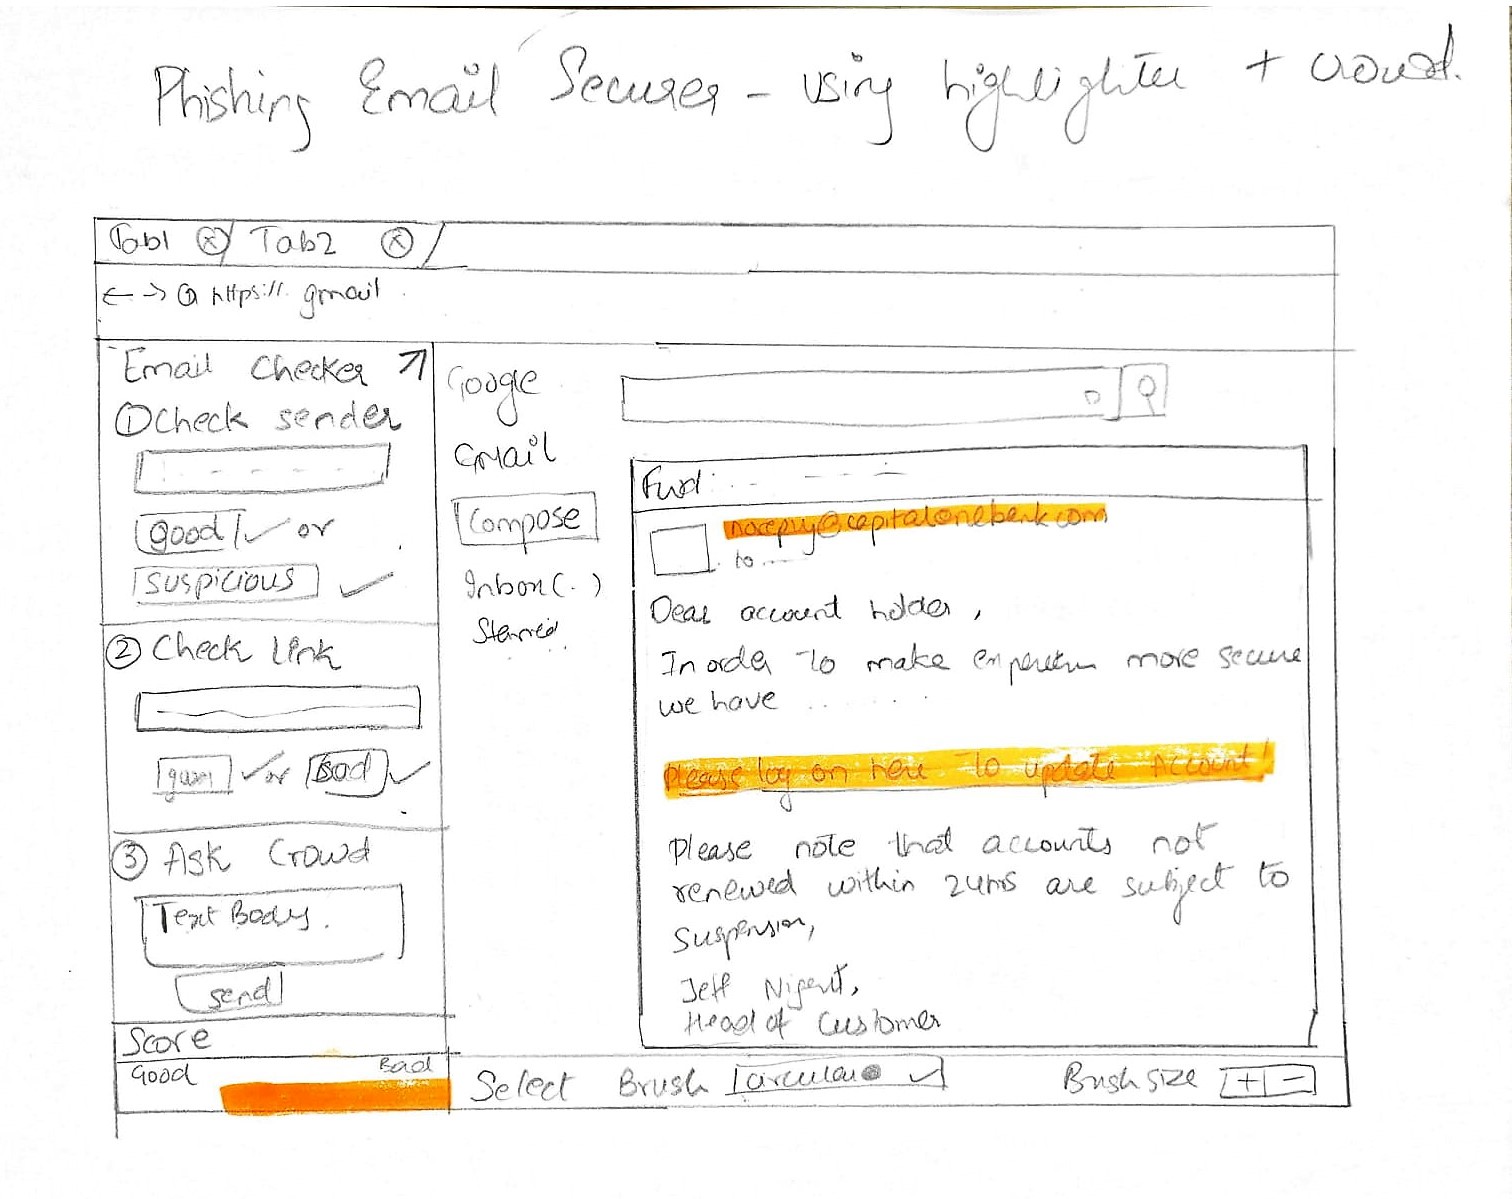 Phishing Email Securer - using highlighter + crowd.
Tab1 ⓧ Tab2 ⓧ
← → https:// gmail
Email Checker ↗
① Check sender
good ✓ or
suspicious ✓
② Check Link
good ✓ or Bad ✓
③ Ask Crowd
Text Body.
send
Score
Good Bad
Google
Gmail
Compose
Inbox (..)
Starred
Fwd:
noreply@capitalonebank.com
to ....
Dear account holder,
In order to make more secure
we have .....
Please log on here to update Account!
Please note that accounts not
renewed within 24hrs are subject to
suspension,
Jeff
Head of Customer
Select Brush circular
Brush size + -